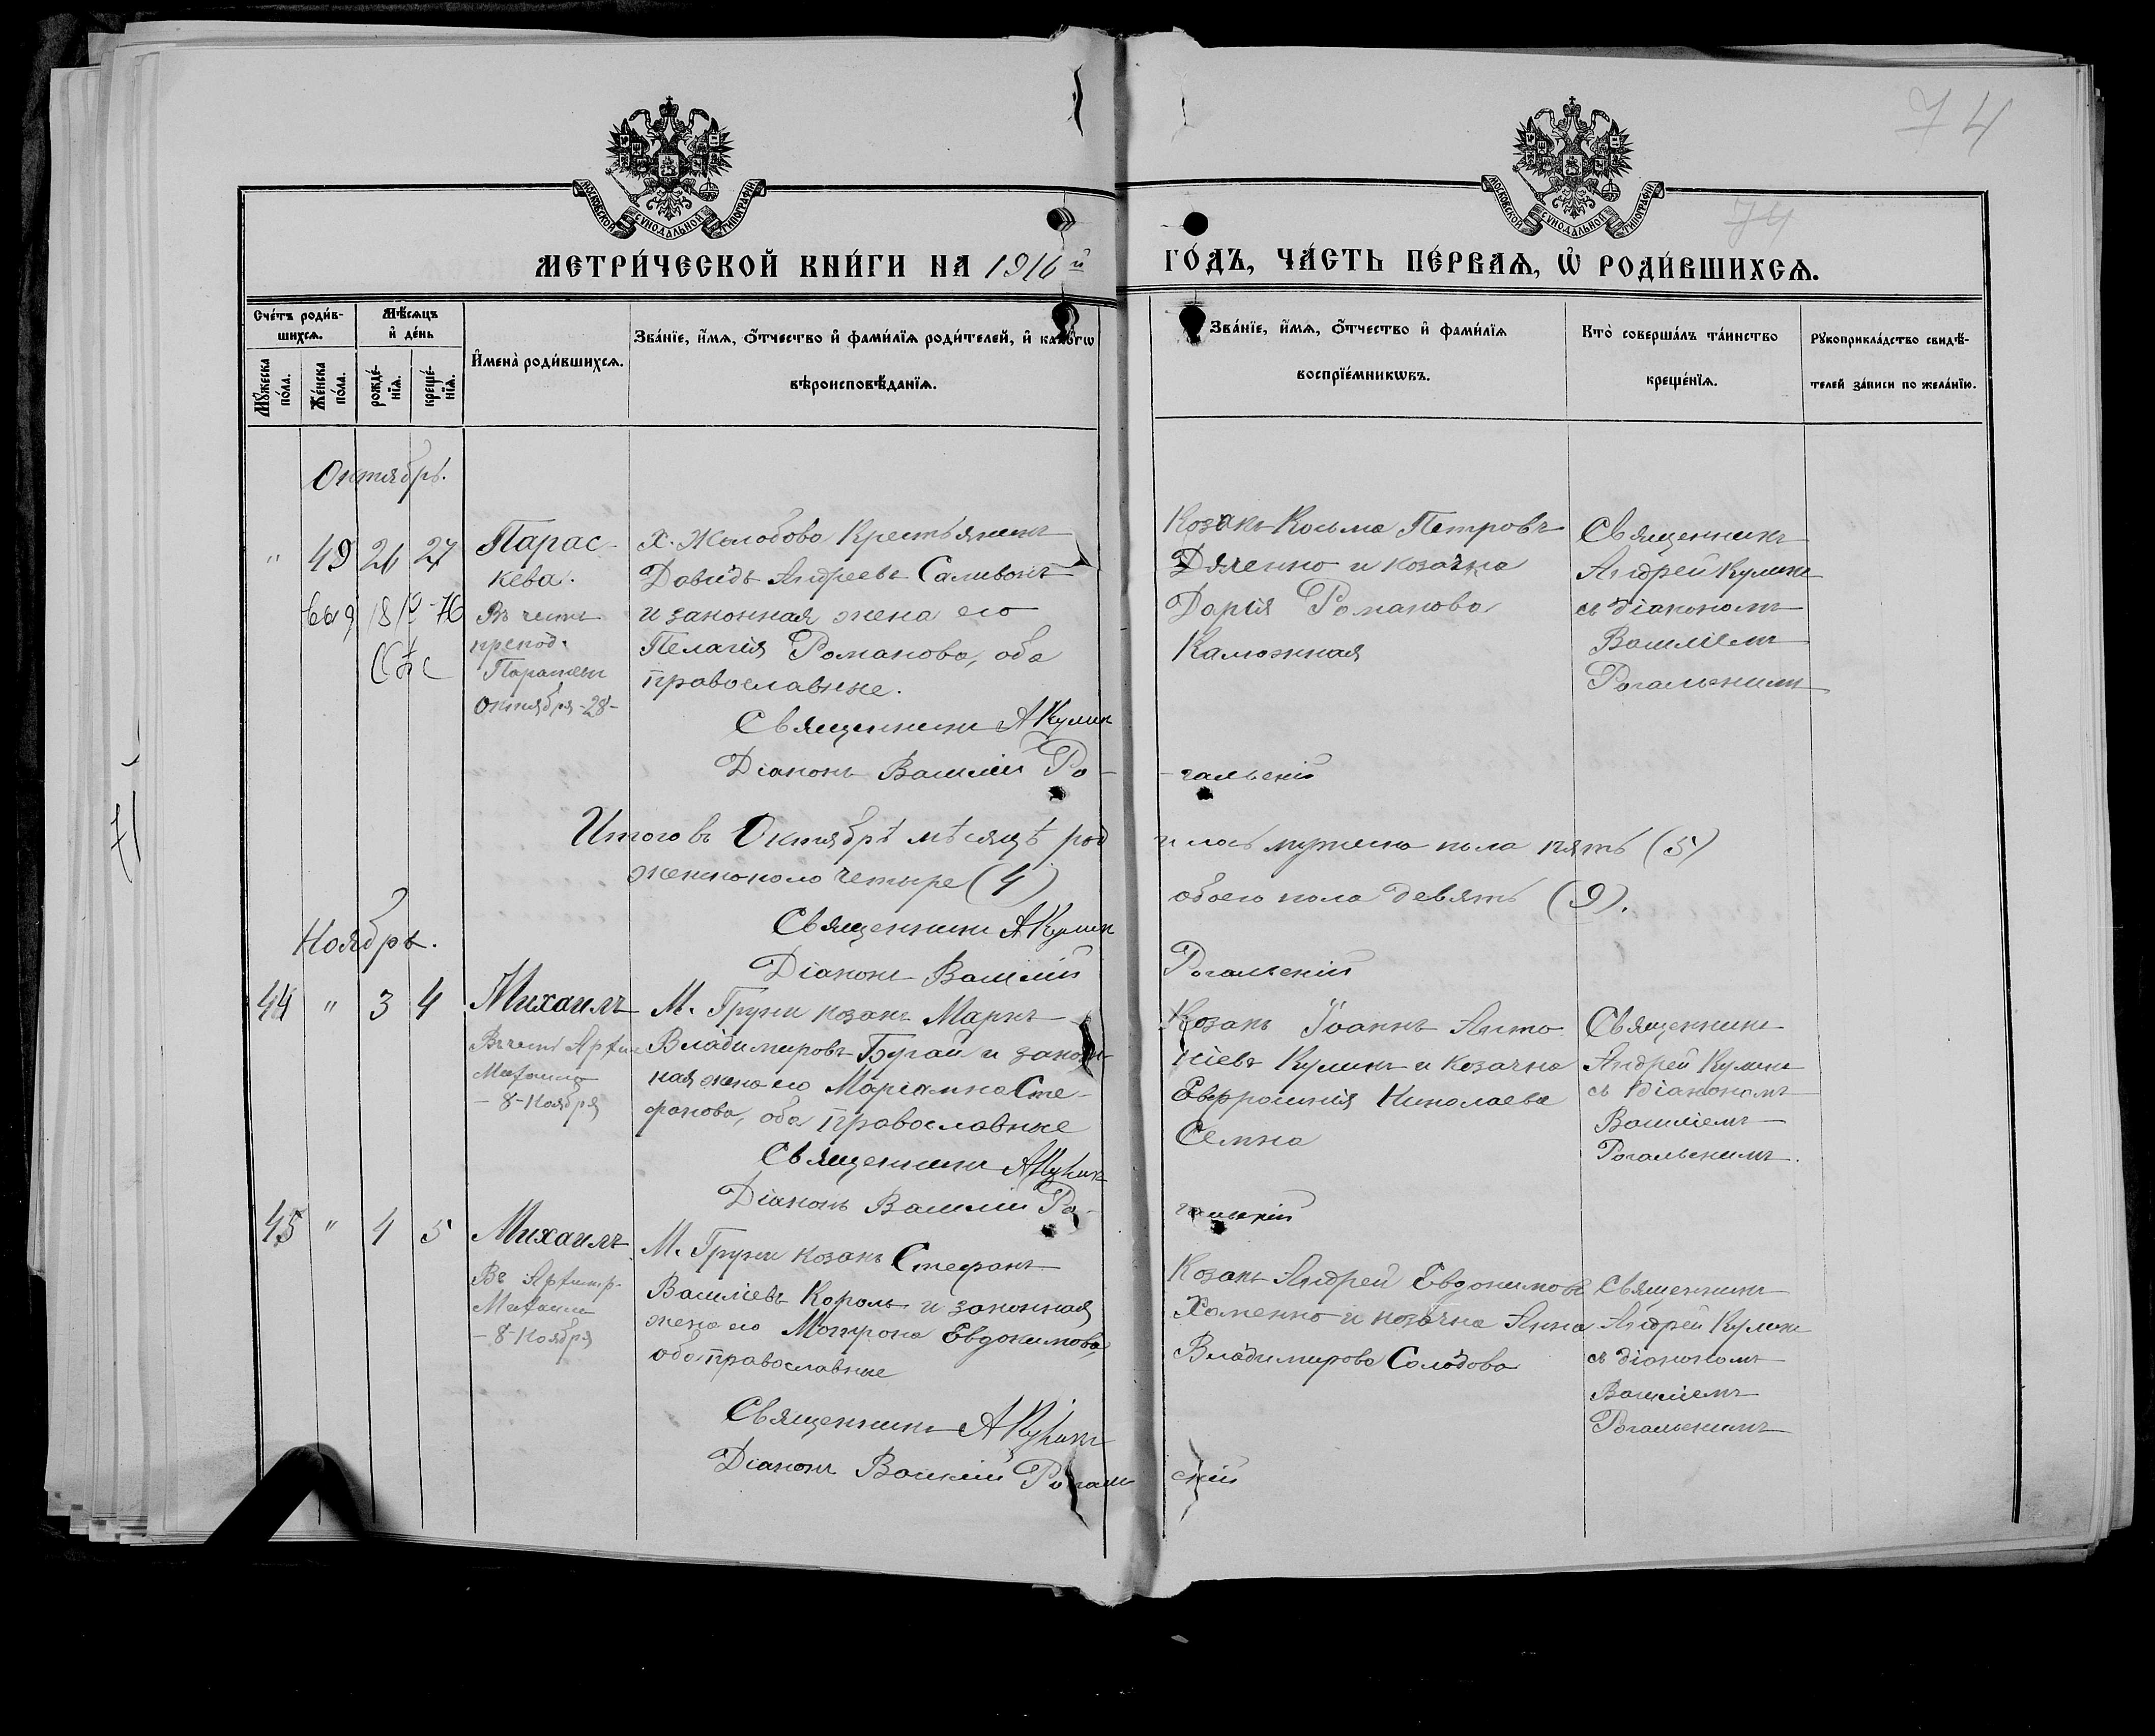 74
74
МОСКОВСКОЙ СѴНОДАЛЬНОЙ ТИПОГРАФІИ
МОСКОВСКОЙ СѴНОДАЛЬНОЙ ТИПОГРАФІИ
МЕТРИ́ЧЕСКОЙ КНИ́ГИ НА 1916й ГО́ДЪ, ЧА́СТЬ ПЕ́РВАѦ, Ѡ РОДИ́ВШИХСѦ.
Сче́тъ роди́в-
шихсѧ.
Мꙋ́жеска по́ла.
Же́нска по́ла.
Мѣ́сѧцъ и де́нь
рожде́-
нїѧ.
креще́-
нїѧ.
И҆мена̀ роди́вшихсѧ.
Зва́нїе, и҆́мѧ, ѻ҆́тчество и҆ фами́лїѧ роди́телей, и҆ како́гѡ
вѣроисповѣ́данїѧ.
Зва́нїе, и҆́мѧ, ѻ҆́тчество и҆ фами́лїѧ
воспрїе́мникѡвъ.
Кто̀ соверша́лъ та́инство
креще́нїѧ.
Рꙋкоприкла́дство свидѣ́-
телей за́писи по жела́нїю.
Октябрь.
" 49 26 27
Парас-
кева.
Въ честь
препод.
Октября -28-
Х. Жолобова Крестьянинъ
Давидъ Андреевъ Саливонъ
и законная жена его
Пелагія Романова, оба
православные.
Козакъ Косьма Петровъ
Дяченко и козачка
Дарія Романова
Священникъ
Андрей Куликъ
съ діакономъ
Василіемъ
Рогальскимъ
Священникъ А Кулик
Діаконъ Василій Ро-
-гальскій
Итого въ Октябрѣ мѣсяцѣ род
илось мужеска пола пять (5)
женскаго четыре (4)
обоего пола девять (9).
Священникъ А Кулик
Діаконъ Василій Рогальскій
Ноябрь.
44 " 3 4
Михаилъ
Михаила
- 8-Ноября
М. Груни козакъ Маркъ
Владимировъ Бугай и закон-
ная жена его Маріамна Сте-
фанова, оба православные
Козакъ Іоаннъ Анто-
ніевъ Куликъ и козачка
Евфросинія Николаева
Священникъ
Андрей Куликъ
съ діакономъ
Василіемъ
Рогальскимъ.
Священникъ А Куликъ
Діаконъ Василій Ро-
гальскій
45 " 4 5
Михаилъ
Михаила
- 8-Ноября
М. Груни козакъ Стефанъ
Василіевъ Король и законная
жена его Мотрона Евдокимова,
оба православные
Козакъ Андрей Евдокимовъ
Хоменко и козачка Анна
Владимирова Солодова
Священникъ
Андрей Куликъ
съ діакономъ
Василіемъ
Рогальскимъ
Священникъ А Куликъ
Діаконъ Василій Рогаль
скій